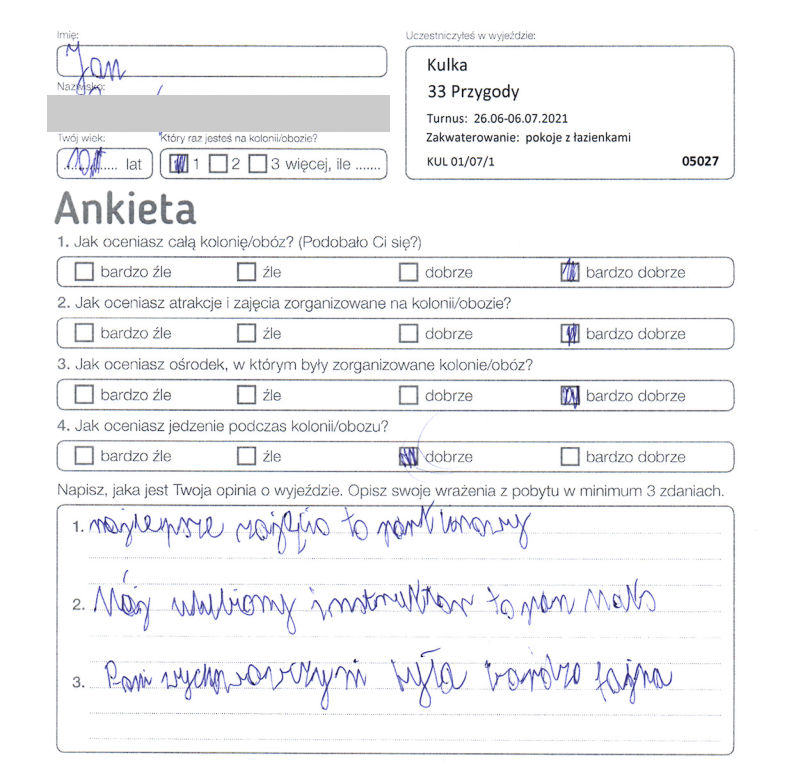 Imię:
Jan
Uczestniczyłeś w wyjeździe:
Kulka
33 Przygody
Turnus: 26.06-06.07.2021
Zakwaterowanie: pokoje z łazienkami
KUL 01/07/1 05027
Nazwisko:
Twój wiek:
10 lat
Który raz jesteś na kolonii/obozie?
1 2 3 więcej, ile .......
Ankieta
1. Jak oceniasz całą kolonię/obóz? (Podobało Ci się?)
bardzo źle źle dobrze bardzo dobrze
2. Jak oceniasz atrakcje i zajęcia zorganizowane na kolonii/obozie?
bardzo źle źle dobrze bardzo dobrze
3. Jak oceniasz ośrodek, w którym były zorganizowane kolonie/obóz?
bardzo źle źle dobrze bardzo dobrze
4. Jak oceniasz jedzenie podczas kolonii/obozu?
bardzo źle źle dobrze bardzo dobrze
Napisz, jaka jest Twoja opinia o wyjeździe. Opisz swoje wrażenia z pobytu w minimum 3 zdaniach.
1. najlepsze zajęcia to park linowy
2. Mój ulubiony instruktor to pan Mats
3. Pani wychowawczyni była bardzo fajna